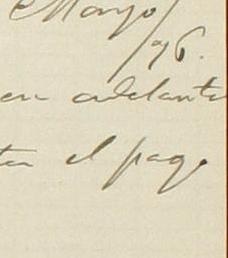 Mayo/
/96.
en adelante
el pago